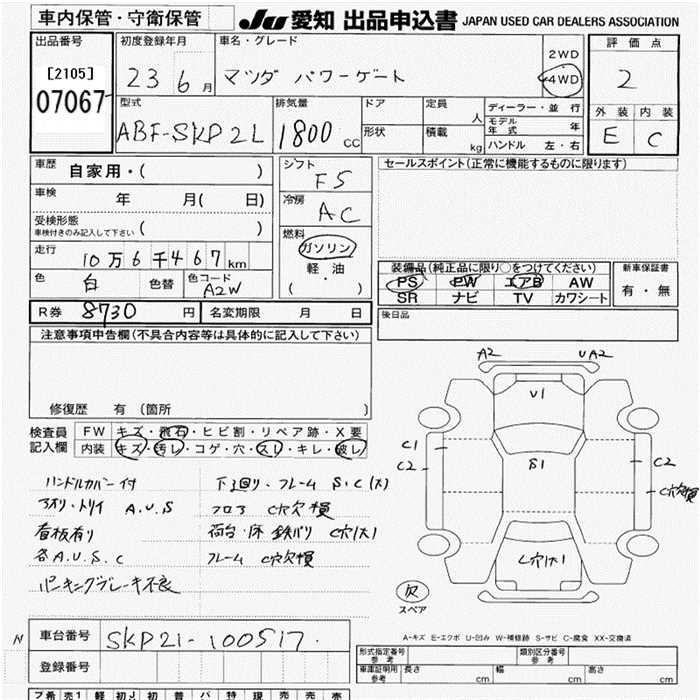 車内保管・守衛保管
JU 愛知 出品申込書 JAPAN USED CAR DEALERS ASSOCIATION
出品番号
[2105]
07067
初度登録年月
23 6月
車名・グレード
マツダ パワーゲート
2WD
4WD
評価点
2
外装 内装
E C
型式
ABF-SKP2L
排気量
1800 cc
ドア
形状
定員 人
積載 kg
ディーラー・並行
モデル年式 年
ハンドル 左・右
車歴 自家用・( )
車検 年 月( 日)
受検形態
車検付きのみ記入して下さい ( )
走行 10万6千467km
色 白 色替 色コード A2W
シフト F5
冷房 AC
燃料 ガソリン
軽・油
( ・ )
セールスポイント(正常に機能するものに限ります)
装備品(純正品に限り○をつけてください)
PS PW エアB AW
SR ナビ TV カワシート
新車保証書
有・無
R券 8730 円 名変期限 月 日
後日品
注意事項申告欄(不具合内容等は具体的に記入して下さい)
修復歴 有(箇所 )
検査員記入欄
FW キズ・飛石・ヒビ割・リペア跡・X要
内装 キズ・汚レ・コゲ・穴・スレ・キレ・破レ
ハンドルカバー付
アオリ・トリイ A.U.S
看板有り
各A.U.S.C
パーキングブレーキ不良
下廻り・フレーム S.C(大)
フロア C穴欠損
荷台・床 鉄バリ C穴(大)
フレーム C穴欠損
A2 UA2
U1
C1
C2
S1
C2
C穴欠損
C穴(大)
欠
スペア
A-キズ E-エクボ U-凹み W-補修跡 S-サビ C-腐食 XX-交換済
N
車台番号 SKP21-100517
登録番号
形式指定番号 参考
類別区分番号 参考
車庫証明用 参考 長さ cm 幅 cm 高さ cm